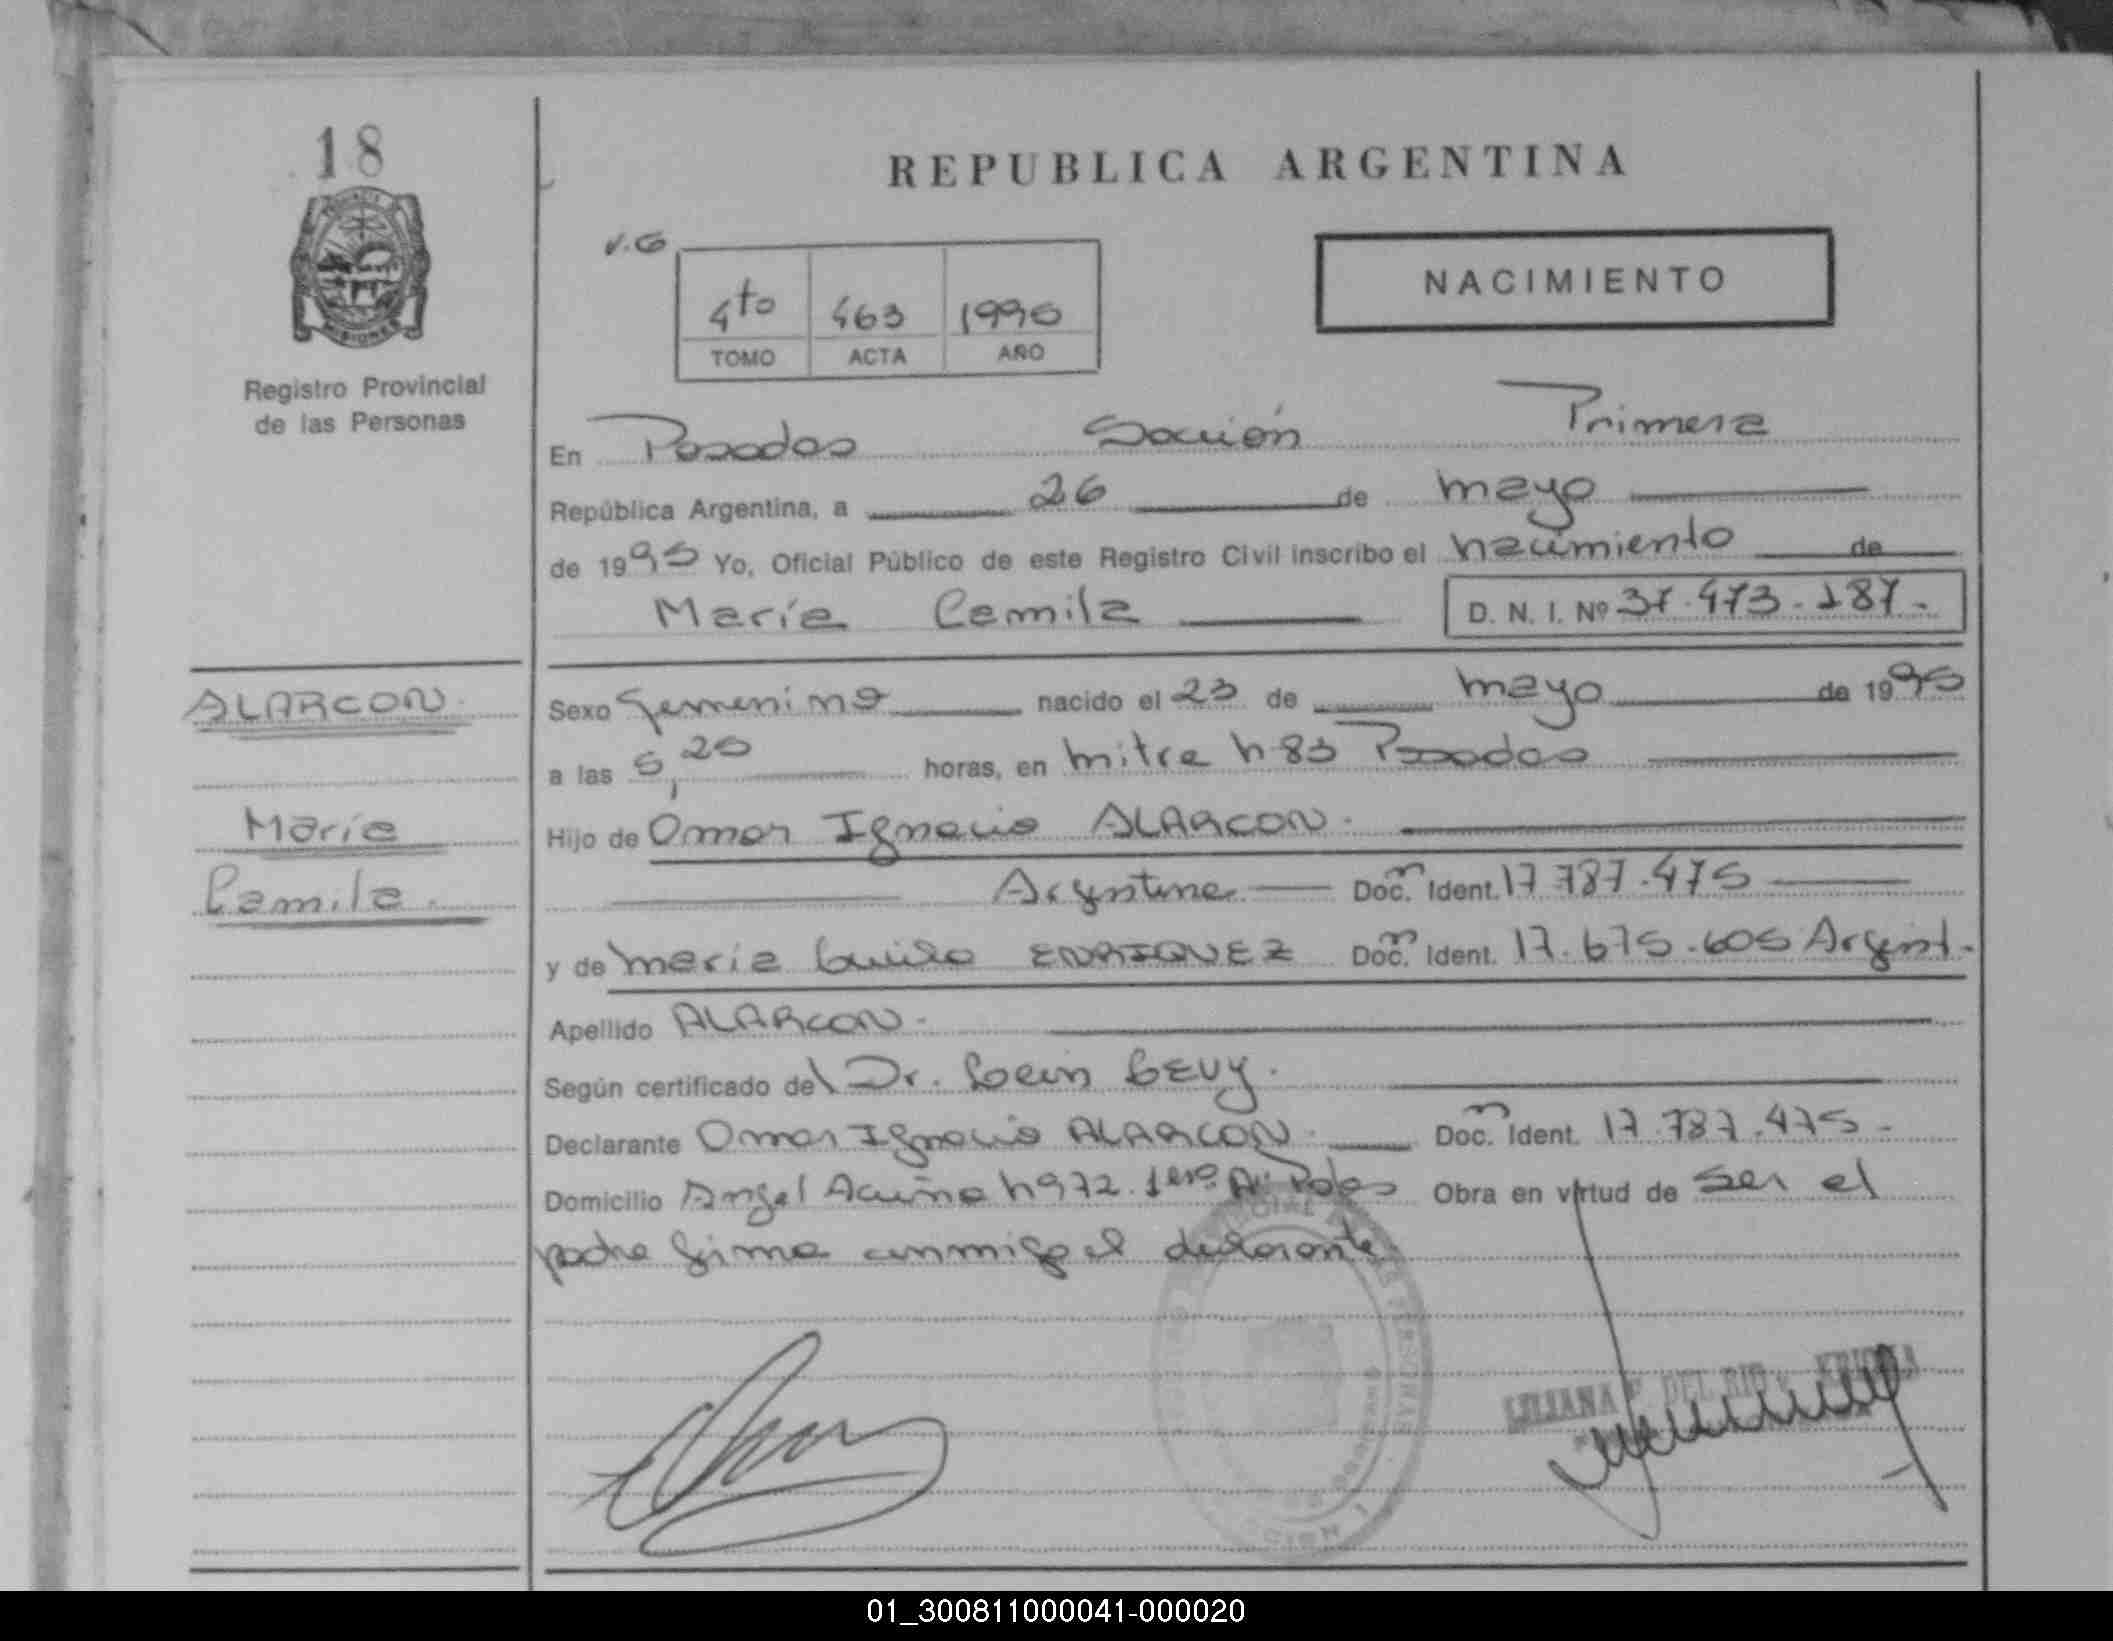 18
REPUBLICA ARGENTINA
V.G
NACIMIENTO
4to 463 1995
TOMO ACTA AÑO
Registro Provincial
de las Personas
En Posadas Sección Primera
República Argentina, a 26 de mayo
de 1995 Yo, Oficial Público de este Registro Civil inscribo el nacimiento de
María Camila D. N. I. Nº 37.473.187.-
ALARCON.
Sexo femenino nacido el 23 de mayo de 1995
a las 5,25 horas, en mitre n 83 Posadas
María
Hijo de Omar Ignacio ALARCON.
Camila.
Argentina Doc. Ident. 17.787.475
y de María ENRIQUEZ Doc. Ident. 17.675.605 Argent.
Apellido ALARCON.
Según certificado del Dr. LEVY.
Declarante Omar Ignacio ALARCON. Doc. Ident. 17.787.475.-
Domicilio Angel Acuña n 972. Pdas Obra en virtud de ser el
padre firma conmigo el declarante.
LILIANA DEL RIO
SECCION 1
01_300811000041-000020